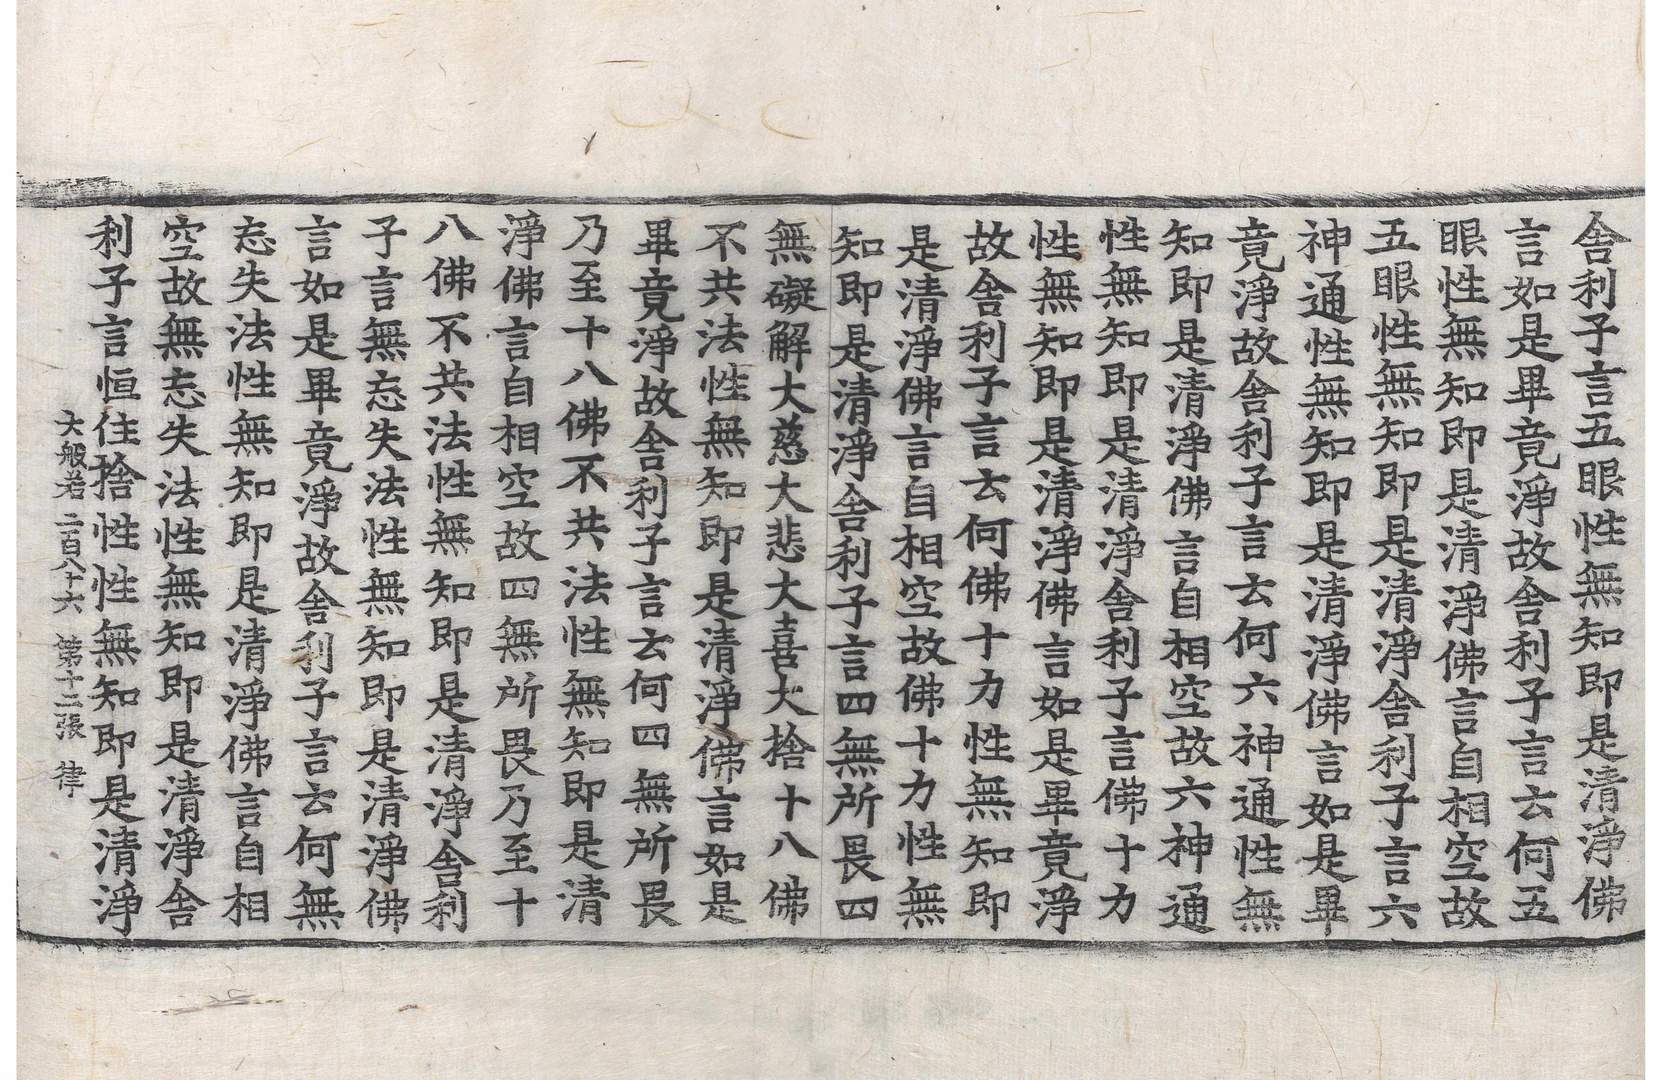 舎利子言五眼性無知即是清淨佛
言如是畢竟淨故舎利子言云何五
眼性無知即是清淨佛言自相空故
五眼性無知即是清淨舎利子言六
神通性無知即是清淨佛言如是畢
竟淨故舎利子言云何六神通性無
知即是清淨佛言自相空故六神通
性無知即是清淨舎利子言佛十力
性無知即是清淨佛言如是畢竟淨
故舎利子言云何佛十力性無知即
是清淨佛言自相空故佛十力性無
知即是清淨舎利子言四無所畏四
無礙解大慈大悲大喜大捨十八佛
不共法性無知即是清淨佛言如是
畢竟淨故舎利子言云何四無所畏
乃至十八佛不共法性無知即是清
淨佛言自相空故四無所畏乃至十
八佛不共法性無知即是清淨舎利
子言無忘失法性無知即是清淨佛
言如是畢竟淨故舎利子言云何無
忘失法性無知即是清淨佛言自相
空故無忘失法性無知即是清淨舎
利子言恒住捨性性無知即是清淨
大般若二百八十六 第十二張 律